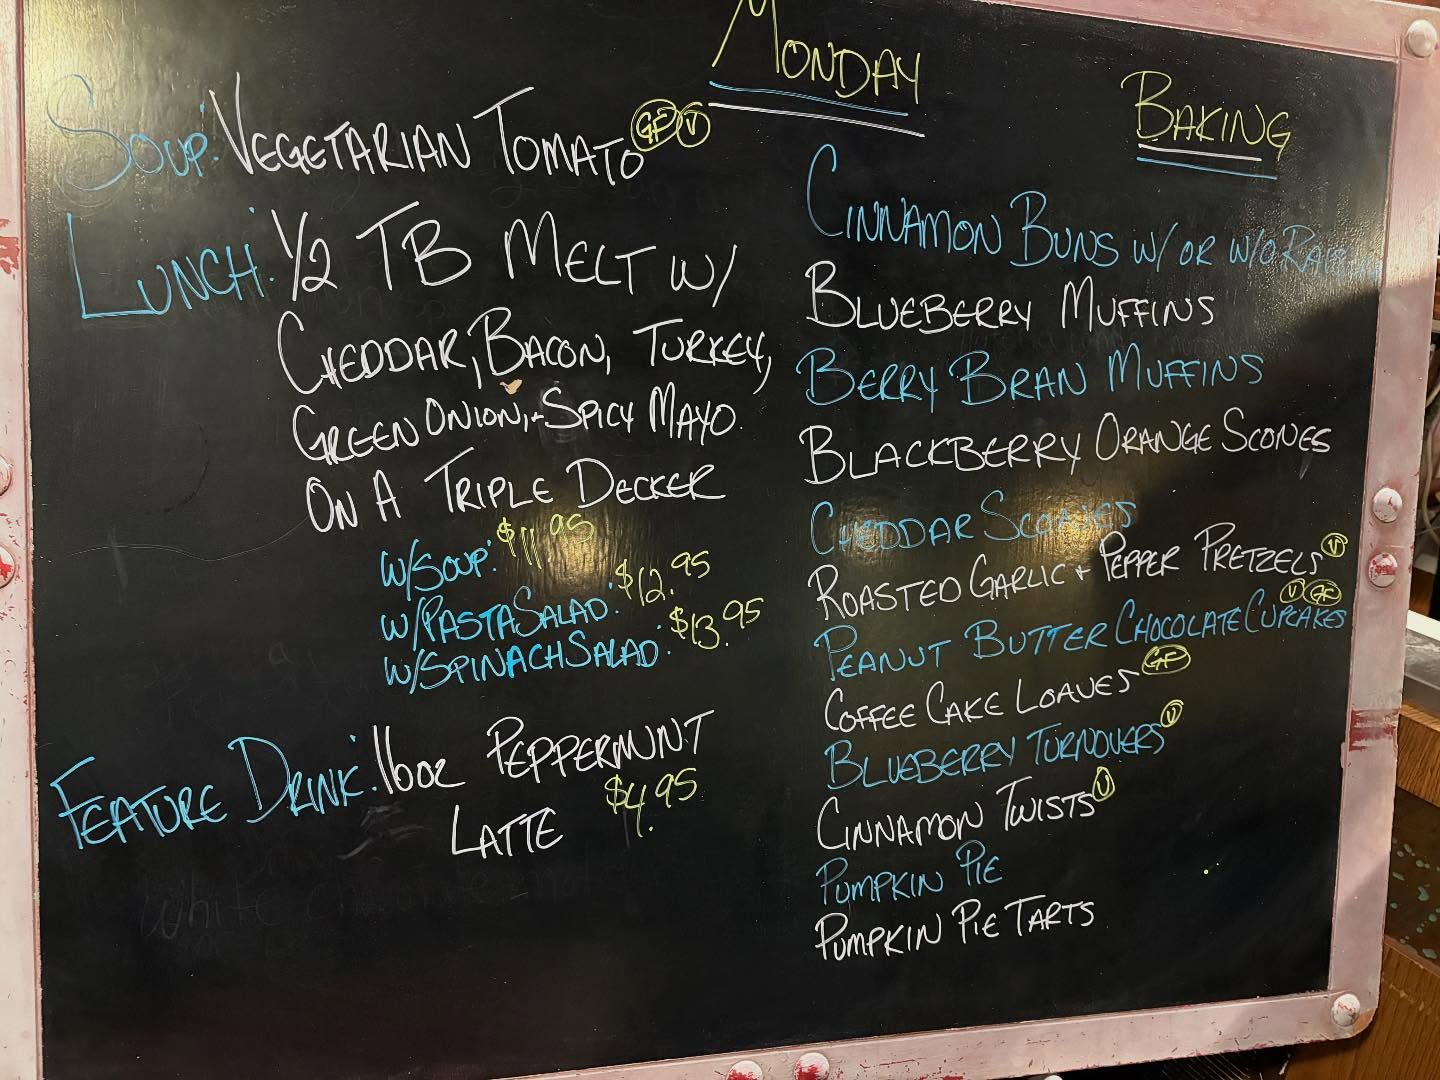 Monday
Soup: Vegetarian Tomato GF V
Lunch: 1/2 TB Melt w/
Cheddar, Bacon, Turkey,
Green Onion, + Spicy Mayo
On A Triple Decker
w/Soup: $11.95
w/Pasta Salad: $12.95
w/Spinach Salad: $13.95
Feature Drink: 16oz Peppermint
Latte $4.95
white
Baking
Cinnamon Buns w/ or w/o Raisins
Blueberry Muffins
Berry Bran Muffins
Blackberry Orange Scones
Cheddar Scones
Roasted Garlic + Pepper Pretzels V
Peanut Butter Chocolate Cupcakes V GF
Coffee Cake Loaves GF
Blueberry Turnovers V
Cinnamon Twists V
Pumpkin Pie
Pumpkin Pie Tarts